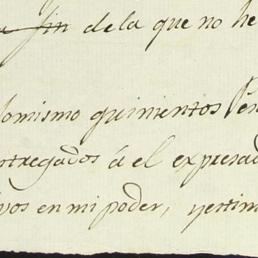 fin de la que no he
lomismo quinientos
ntregados á el expresad
vos en mi poder, yestim